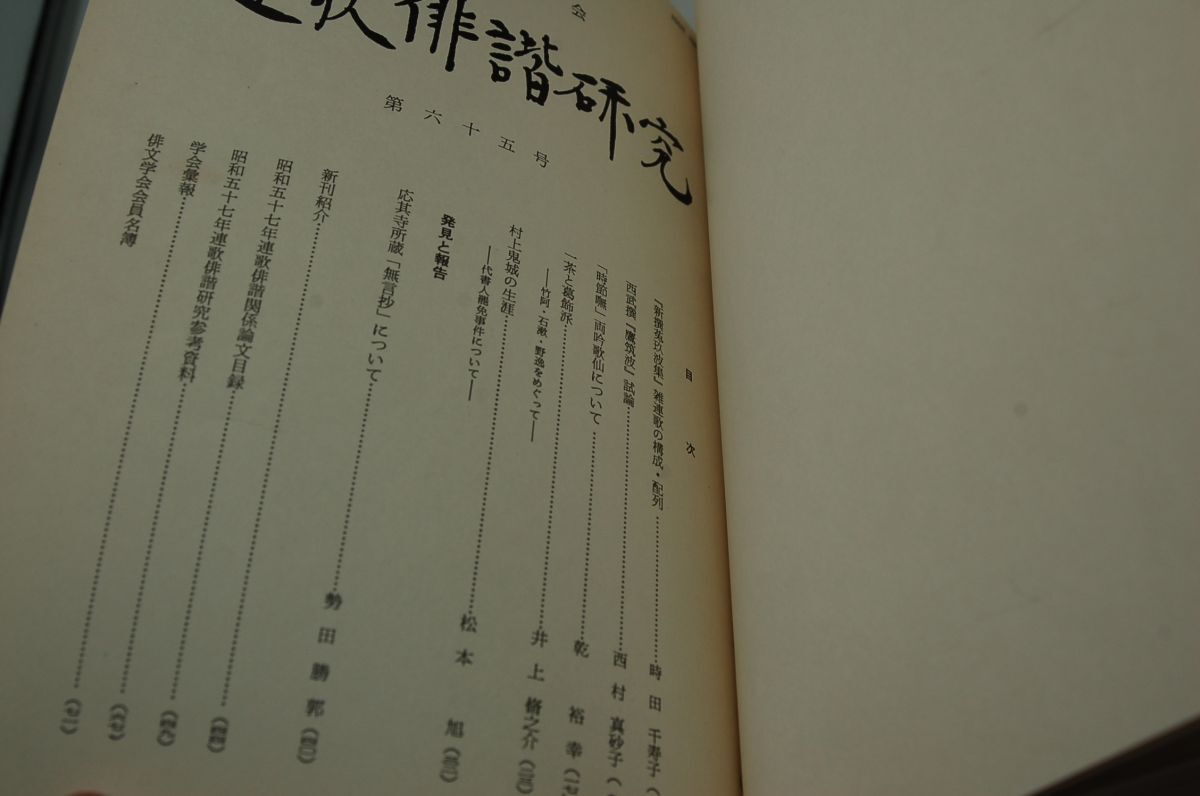 会
連歌俳諧研究
第六十五号
目次
『新撰菟玖波集』雑連歌の構成・配列……時田千寿子（
西武撰『鷹筑波』試論……西村真砂子（
「時節嘸」両吟歌仙について……乾裕幸（一七）
一茶と葛飾派……井上脩之介
――竹阿・石漱・野逸をめぐって――
村上鬼城の生涯……松本旭
――代書人罷免事件について――
発見と報告
応其寺所蔵「無言抄」について……勢田勝郭
新刊紹介
昭和五十七年連歌俳諧関係論文目録
昭和五十七年連歌俳諧研究参考資料
学会彙報
俳文学会会員名簿